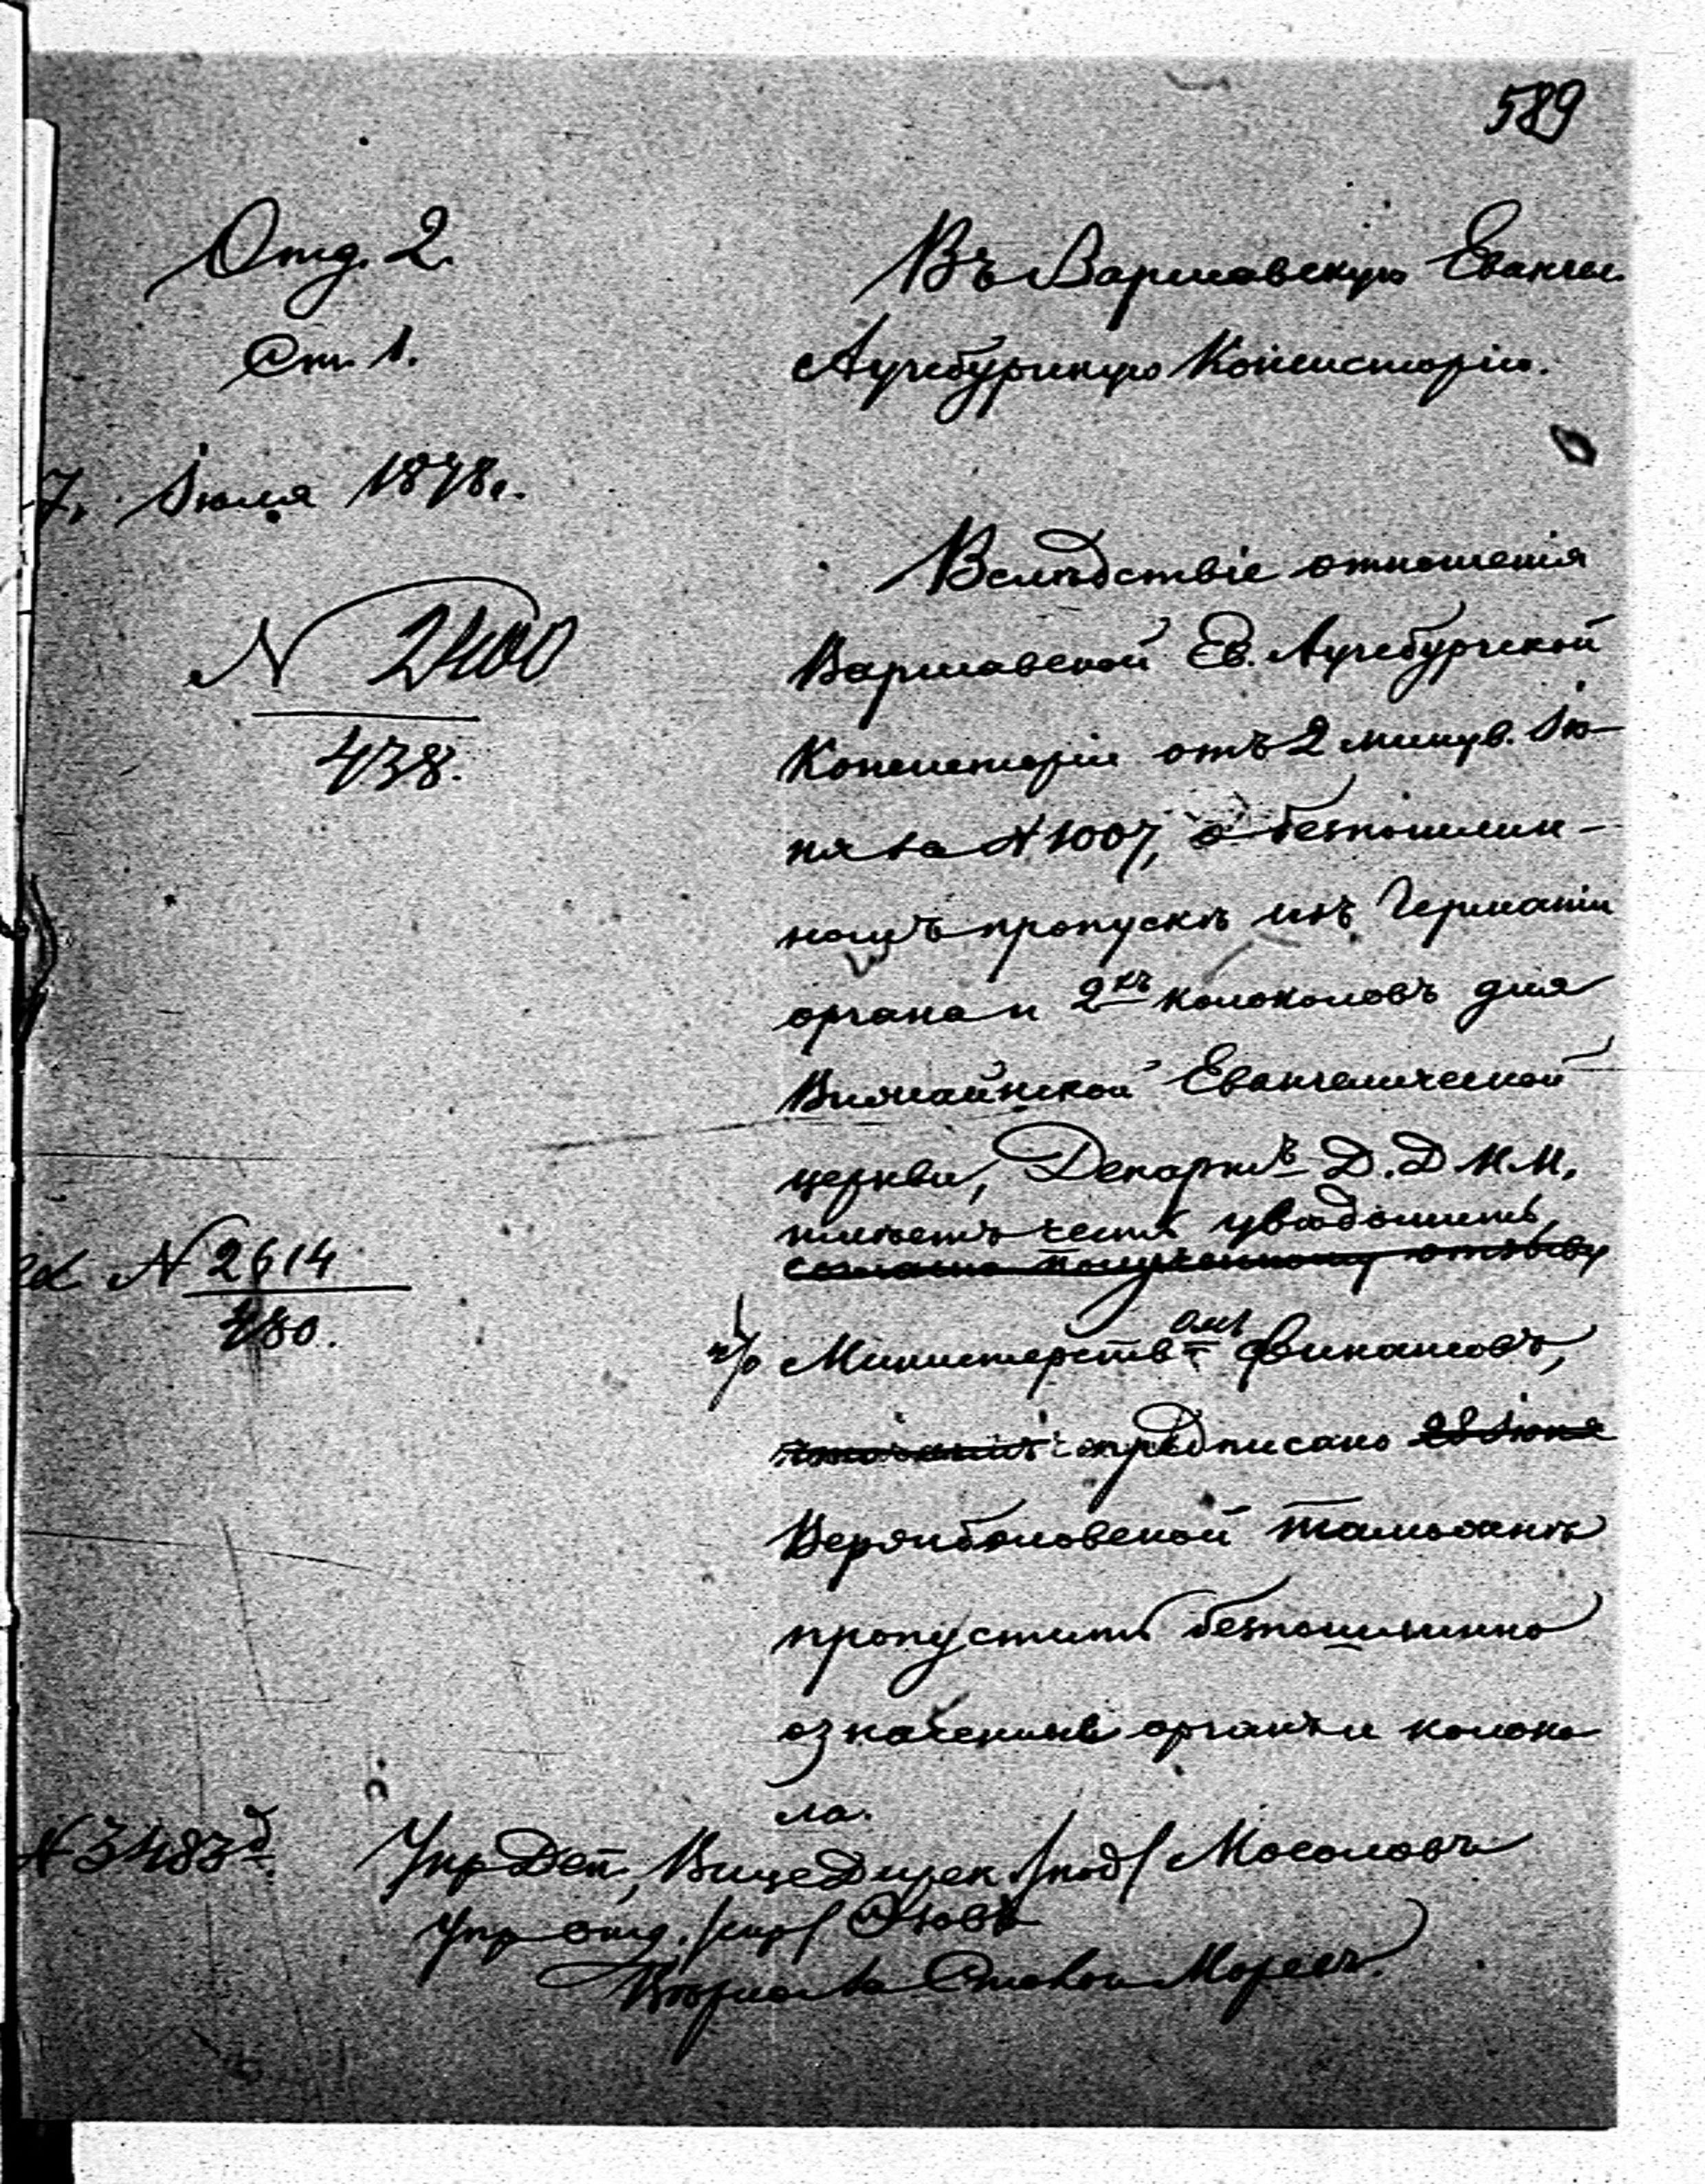 589
Отд. 2.
Ст. 1.
7. Іюля 1878 г.
N 2400
438.
Въ Варшавскую Евангел.
Аугсбургскую Консисторію.
Вслѣдствіе отношенія
Варшавской Ев. Аугсбургской
Консисторіи отъ 2 минув. Ію-
ня за N 1007, о безпошлин-
номъ пропускѣ изъ Германіи
органа и 2хъ колоколовъ для
Вижайнской Евангелической
церкви, Департъ Д. Д. И. И.
имѣетъ честь увѣдомить,
согласно полученному отзыву
N 2614
480.
ч/о Министерств омъ Финансовъ,
предписано 28 Іюня
Вержболовской таможнѣ
пропустить безпошлинно
означенные органъ и колоко
ла.
N 3483
Упр Деп, Вице Дирек /под/ Мосоловъ
Упр отд. /скр/
Вѣрно